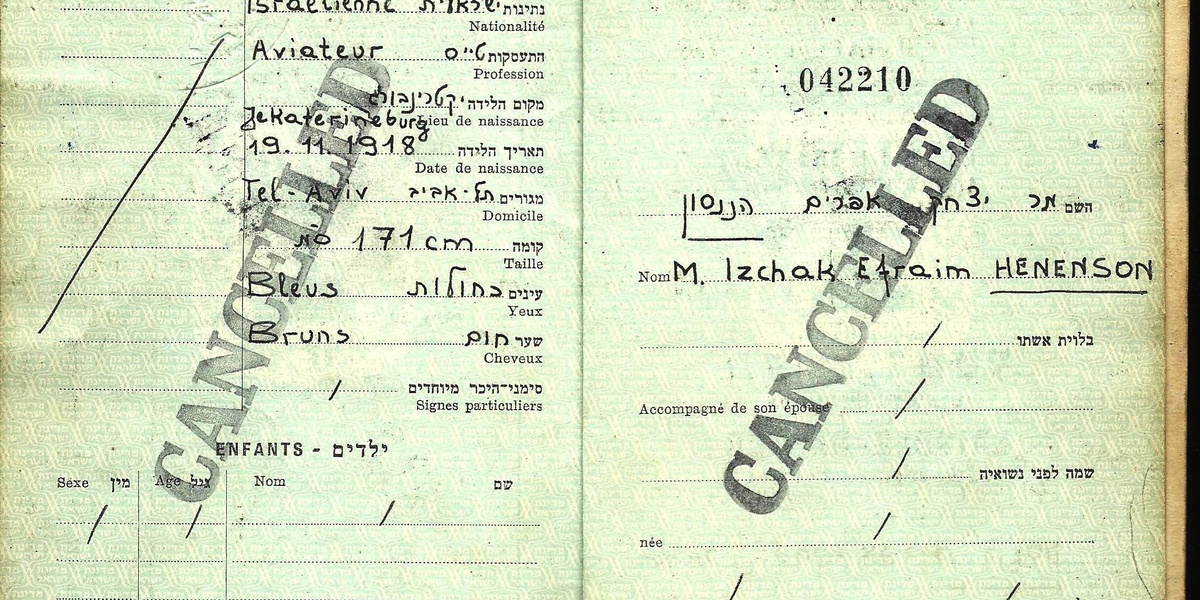 Israélienne ישראלית נתינות
Nationalité
Aviateur טייס התעסקות
Profession
יקטרינבורג מקום הלידה
Jekaterineburg Lieu de naissance
19.11.1918 תאריך הלידה
Date de naissance
Tel-Aviv תל-אביב מגורים
Domicile
171 cm סמ קומה
Taille
Bleus כחולות עינים
Yeux
Bruns חום שער
Cheveux
/ סימני־היכר מיוחדים
Signes particuliers
ENFANTS - ילדים
Sexe מין Age גיל Nom שם
/ / /
CANCELLED
042210
השם מר יצחק אפרים הננסון
Nom M. Izchak Efraim HENENSON
בלוית אשתו /
Accompagné de son épouse /
שמה לפני נשואיה /
née /
CANCELLED